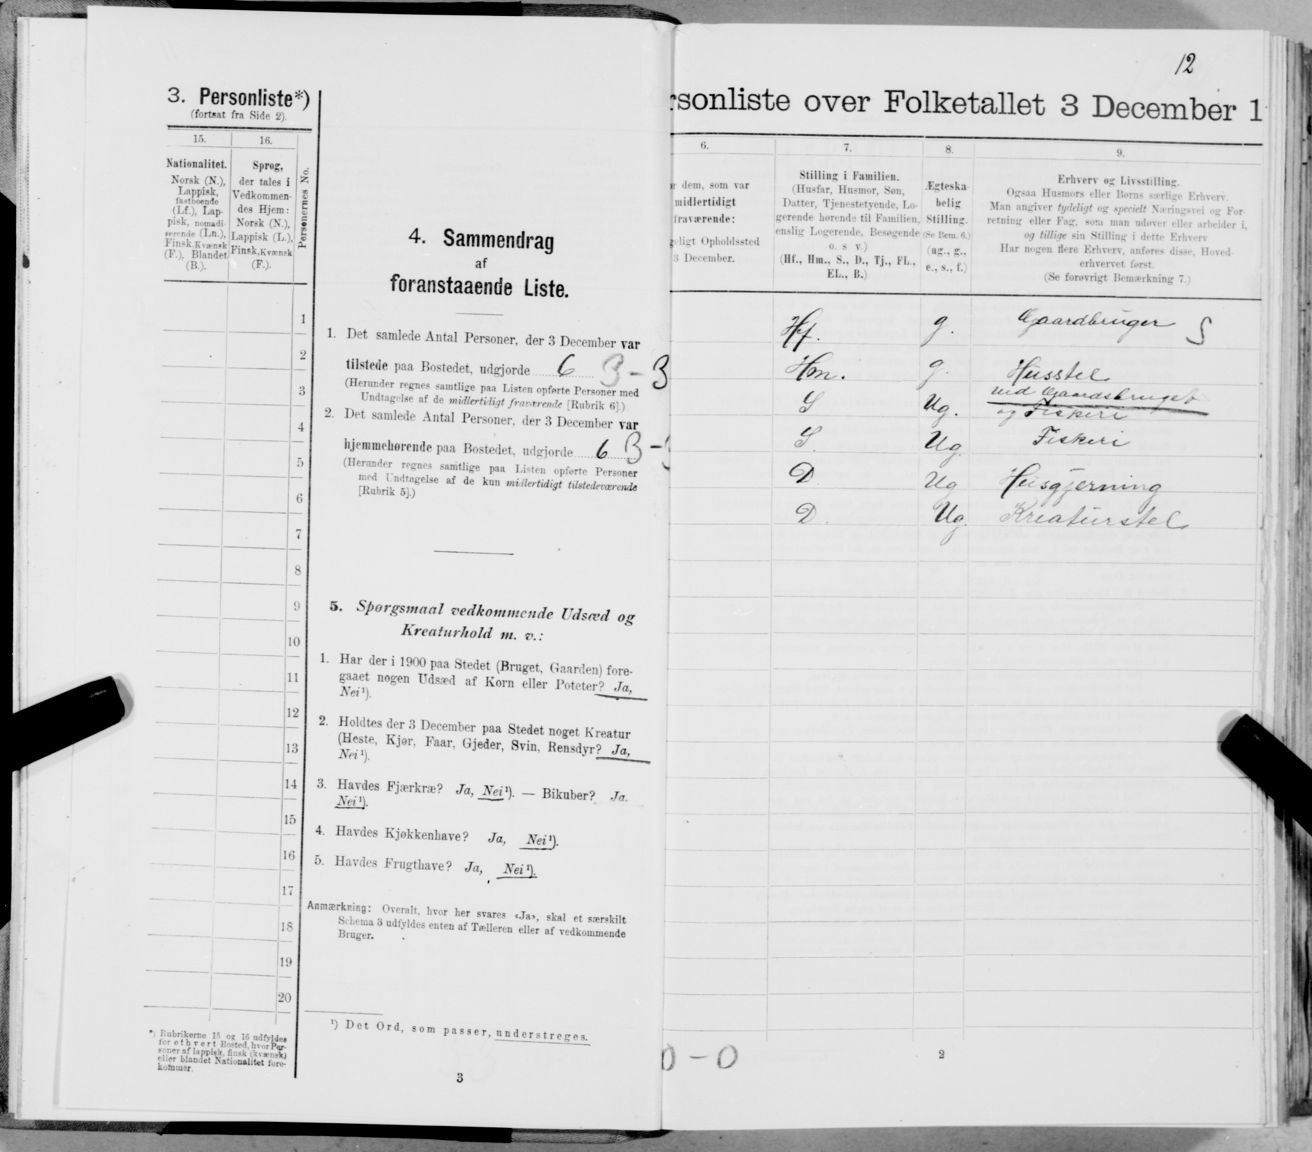 12
3. Personliste*)
(fortsat fra Side 2).
15.
16.
Nationalitet.
Norsk (N.),
Lappisk,
fastboende
(Lf.), Lap-
pisk, nomadi-
serende (Ln.),
Finsk, Kvænsk
(F.), Blandet
(B.).
Sprog,
der tales i
Vedkommen-
des Hjem:
Norsk (N.),
Lappisk (L.),
Finsk, Kvænsk
(F.).
Personernes No.
1
2
3
4
5
6
7
8
9
10
11
12
13
14
15
16
17
18
19
20
*) Rubrikerne 15 og 16 udfyldes
for ethvert Bosted, hvor Per-
soner af lappisk, finsk (kvænsk)
eller blandet Nationalitet fore-
kommer.
4. Sammendrag
af
foranstaaende Liste.
1. Det samlede Antal Personer, der 3 December var
tilstede paa Bostedet, udgjorde 6 3-3
(Herunder regnes samtlige paa Listen opførte Personer med
Undtagelse af de midlertidigt fraværende [Rubrik 6].)
2. Det samlede Antal Personer, der 3 December var
hjemmehørende paa Bostedet, udgjorde 6 3-
(Herunder regnes samtlige paa Listen opførte Personer
med Undtagelse af de kun midlertidigt tilstedeværende
[Rubrik 5].)
5. Spørgsmaal vedkommende Udsæd og
Kreaturhold m. v.:
1. Har der i 1900 paa Stedet (Bruget, Gaarden) fore-
gaaet nogen Udsæd af Korn eller Poteter? Ja,
Nei¹).
2. Holdtes der 3 December paa Stedet noget Kreatur
(Heste, Kjør, Faar, Gjeder, Svin, Rensdyr? Ja,
Nei¹).
3. Havdes Fjærkræ? Ja, Nei¹). — Bikuber? Ja.
Nei¹).
4. Havdes Kjøkkenhave? Ja, Nei¹).
5. Havdes Frugthave? Ja, Nei¹).
Anmærkning: Overalt, hvor her svares «Ja», skal et særskilt
Schema 3 udfyldes enten af Tælleren eller af vedkommende
Bruger.
¹) Det Ord, som passer, understreges.
3
rsonliste over Folketallet 3 December 1
6.
7.
8.
9.
r dem, som var
midlertidigt
fraværende:
geligt Opholdssted
3 December.
Stilling i Familien.
(Husfar, Husmor, Søn,
Datter, Tjenestetyende, Lo-
gerende hørende til Familien,
enslig Logerende, Besøgende
o. s v.)
(Hf., Hm., S., D., Tj., FL.,
EL., B.)
Ægteska-
belig
Stilling.
(Se Bem. 6.)
(ug., g.,
e., s., f.)
Erhverv og Livsstilling.
Ogsaa Husmors eller Børns særlige Erhverv.
Man angiver tydeligt og specielt Næringsvei og For-
retning eller Fag, som man udøver eller arbeider i,
og tillige sin Stilling i dette Erhverv
Har nogen flere Erhverv, anføres disse, Hoved-
erhvervet først.
(Se forøvrigt Bemærkning 7.)
Hf. g. Gaardbruger S
Hm. g. Husstel
S Ug. ved Gaardsbruget
og Fiskeri
S. Ug Fiskeri
D. Ug Husgjerning
D. Ug. Kreaturstel
0-0
2